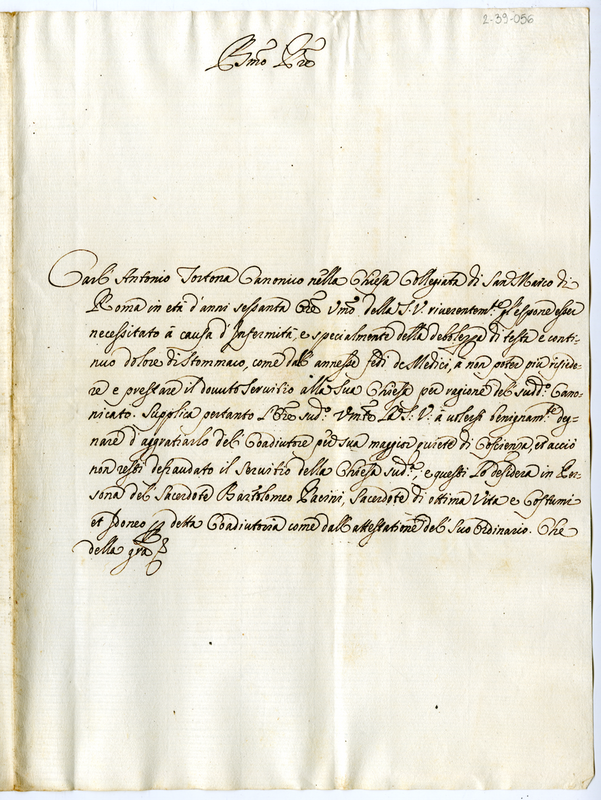 2-39-056
Bmo Pre
Carlo Antonio Tortona Canonico nella Chiesa Collegiata di San Marco di
Roma in età d'anni sessanta Ore Vmo della S.V. riverentemte gl'espone esser
necessitato à causa d'Infermità, e specialmente della debolezza di testa e conti=
nuo dolore di stommaco, come dall'annesse fedi de Medici, à non poter più risiede=
re e prestare il dovuto servitio alla sua Chiesa per ragione del sudo Cano=
nicato. Supplica pertanto l'Ore sudo Vmte La S.V. à volersi benignamte de=
gnare d'aggratiarlo del Coadiutore per sua maggior quiete di Coscienza, et acciò
non resti defraudato il servitio della Chiesa suda, e questi lo desidera in Per=
sona del Sacerdote Bartolomeo Pacini, Sacerdote di ottima Vita e Costumi
et Idoneo detta Coadiutoria come dall'attestatione del suo Ordinario. Che
della gra